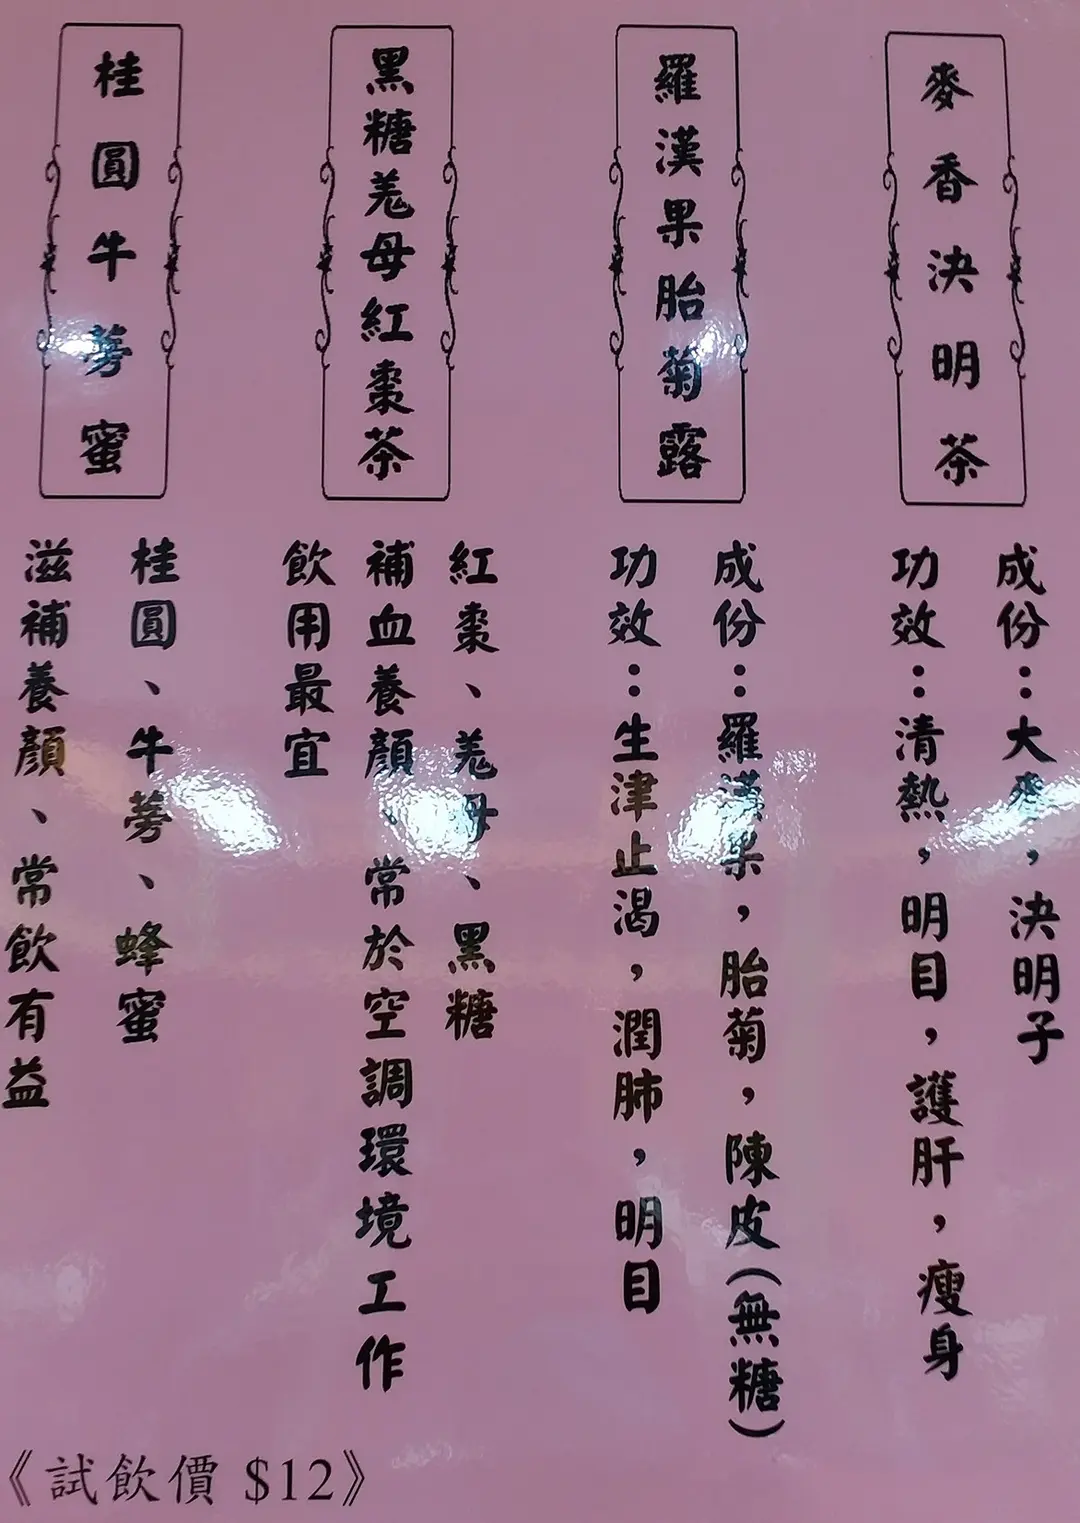 麥香決明茶
成份：大麥，決明子
功效：清熱，明目，護肝，瘦身
羅漢果胎菊露
成份：羅漢果，胎菊，陳皮(無糖)
功效：生津止渴，潤肺，明目
黑糖羗母紅棗茶
紅棗、羗母、黑糖
補血養顏、常於空調環境工作
飲用最宜
桂圓牛蒡蜜
桂圓、牛蒡、蜂蜜
滋補養顏、常飲有益
《試飲價 $12》